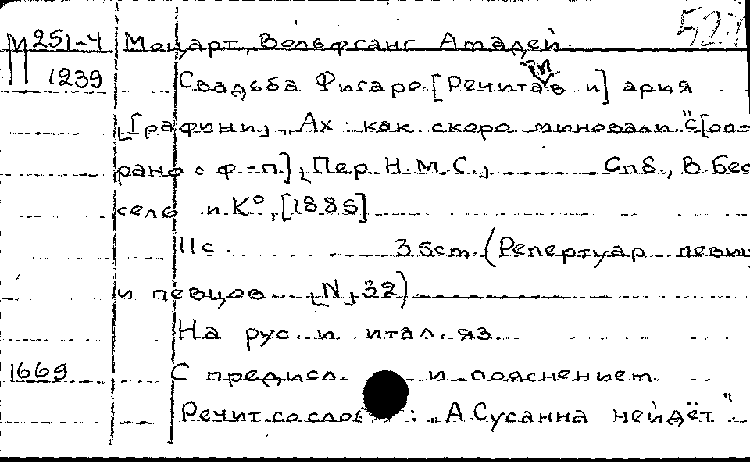 527
М 251-4 Моцарт, Вольфганг Амадей
1239 Свадьба Фигаро. [Речитатив и] ария
[Графини] „Ах как скоро миновали" с [соп-
рано с ф-п], [Пер. Н.М.С.] Спб., В. Бес-
сель и К°, [1885]
11с. 35cm. (Репертуар певиц
и певцов [N] 32)
На рус. и итал. яз.
1669 С предисл. и пояснением.
Речит. со слов: „А Сусанна нейдёт"